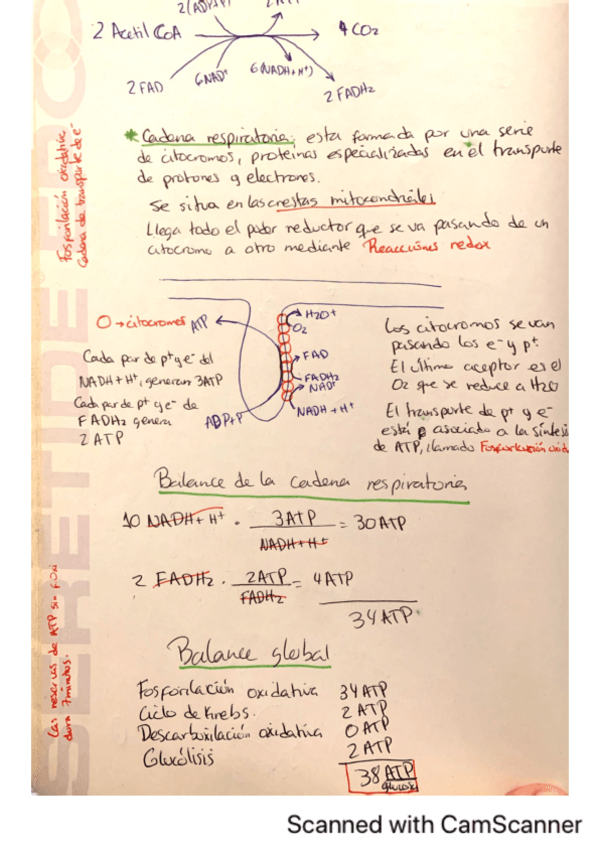 2(ADP+P)
2 Acetil CoA
4 CO2
2 FAD
6NAD+
6(NADH+H+)
2 FADH2
Fosforilación oxidativa,
Cadena de transporte de e-
* Cadena respiratoria: esta formada por una serie
de citocromos, proteínas especializadas en el transporte
de protones y electrones.
Se situa en las crestas mitocondriales
Llega todo el poder reductor que se va pasando de un
citocromo a otro mediante Reacciones redox
O → citocromos
ATP
H2O+
O2
FAD
FADH2
NAD+
NADH + H+
ADP+P
Cada par de p+ y e- del
NADH+H+, generan 3ATP
Cada par de p+ y e- de
FADH2 genera
2 ATP
Los citocromos se van
pasando los e- y p+.
El último aceptor es el
O2 que se reduce a H2O
El transporte de p+ y e-
está asociado a la síntesis
de ATP, llamado Fosforilación oxid
Balance de la cadena respiratoria
10 NADH+ H+ · 3ATP / NADH+H+ = 30ATP
2 FADH2 · 2ATP / FADH2 = 4ATP
34ATP
Balance global
Fosforilación oxidativa 34ATP
Ciclo de Krebs. 2 ATP
Descarboxilación oxidativa 0ATP
Glucólisis 2 ATP
38 ATP / glucosa
Las reservas de ATP sin
dura 7minutos.
SERETIDE
Scanned with CamScanner